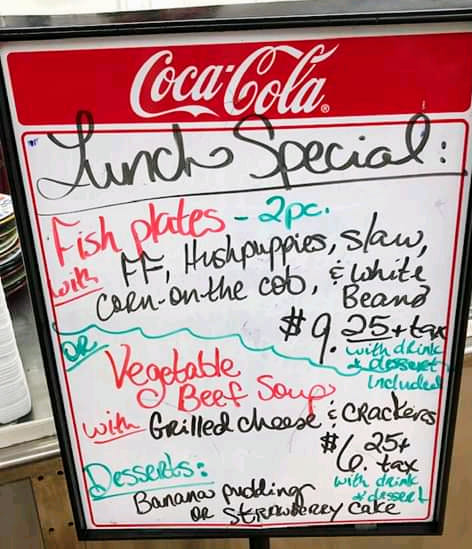 Coca-Cola
Lunch Special:
Fish plates - 2pc.
with FF, Hushpuppies, slaw,
corn-on-the cob, & white
Beans
$9.25+tax
with drink
& dessert
Included
OR
Vegetable
Beef Soup
with Grilled cheese & crackers
$6.25+
tax
with drink
& dessert
Desserts:
Banana pudding
OR strawberry cake